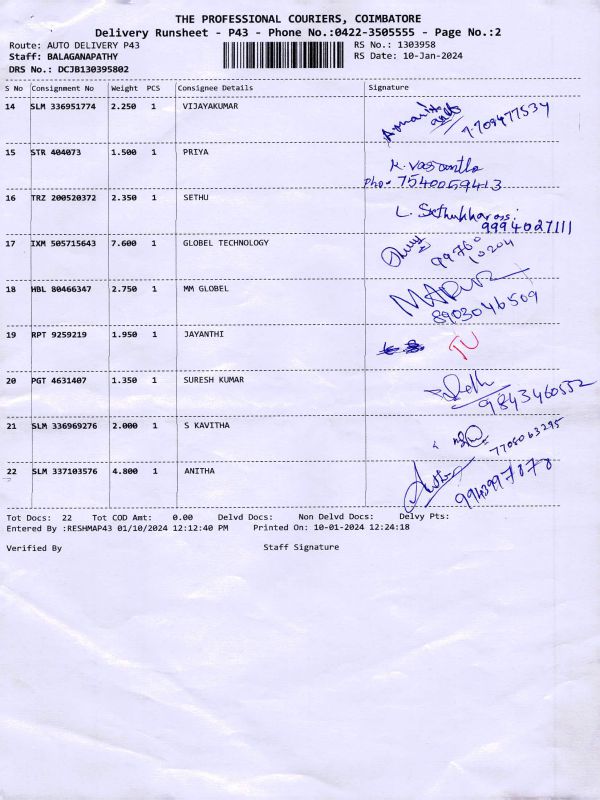 THE PROFESSIONAL COURIERS, COIMBATORE
Delivery Runsheet - P43 - Phone No.:0422-3505555 - Page No.:2
Route: AUTO DELIVERY P43 RS No.: 1303958
Staff: BALAGANAPATHY RS Date: 10-Jan-2024
DRS No.: DCJB130395802
S No Consignment No Weight PCS Consignee Details Signature
14 SLM 336951774 2.250 1 VIJAYAKUMAR
7.709477534
15 STR 404073 1.500 1 PRIYA K. Vasantha
Pho- 7540059413
16 TRZ 200520372 2.350 1 SETHU L. Sethukkarasi
9994027111
17 IXM 505715643 7.600 1 GLOBEL TECHNOLOGY 99760
10204
18 HBL 80466347 2.750 1 MM GLOBEL
8903046509
19 RPT 9259219 1.950 1 JAYANTHI TU
20 PGT 4631407 1.350 1 SURESH KUMAR
9843460552
21 SLM 336969276 2.000 1 S KAVITHA
7708063295
22 SLM 337103576 4.800 1 ANITHA Anitha
9943997878
Tot Docs: 22 Tot COD Amt: 0.00 Delvd Docs: Non Delvd Docs: Delvy Pts:
Entered By :RESHMAP43 01/10/2024 12:12:40 PM Printed On: 10-01-2024 12:24:18
Verified By Staff Signature